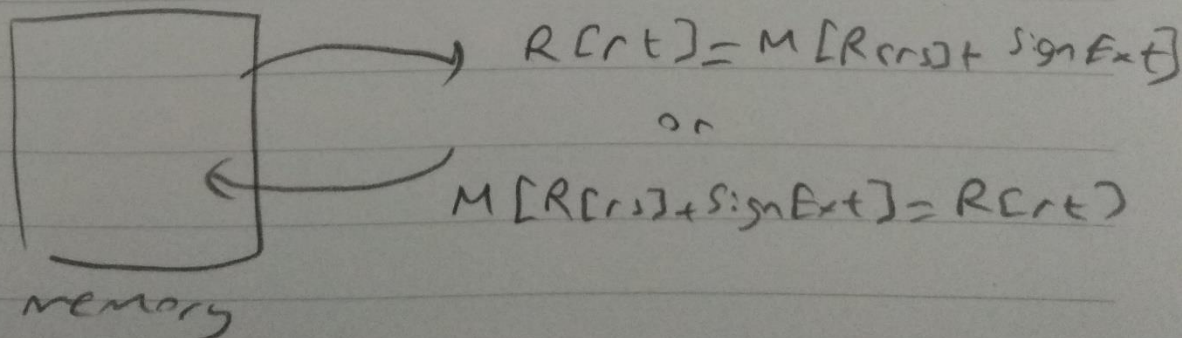 R[rt]=M[R[rs]+SignExt]
or
M[R[rs]+SignExt]=R[rt]
memory